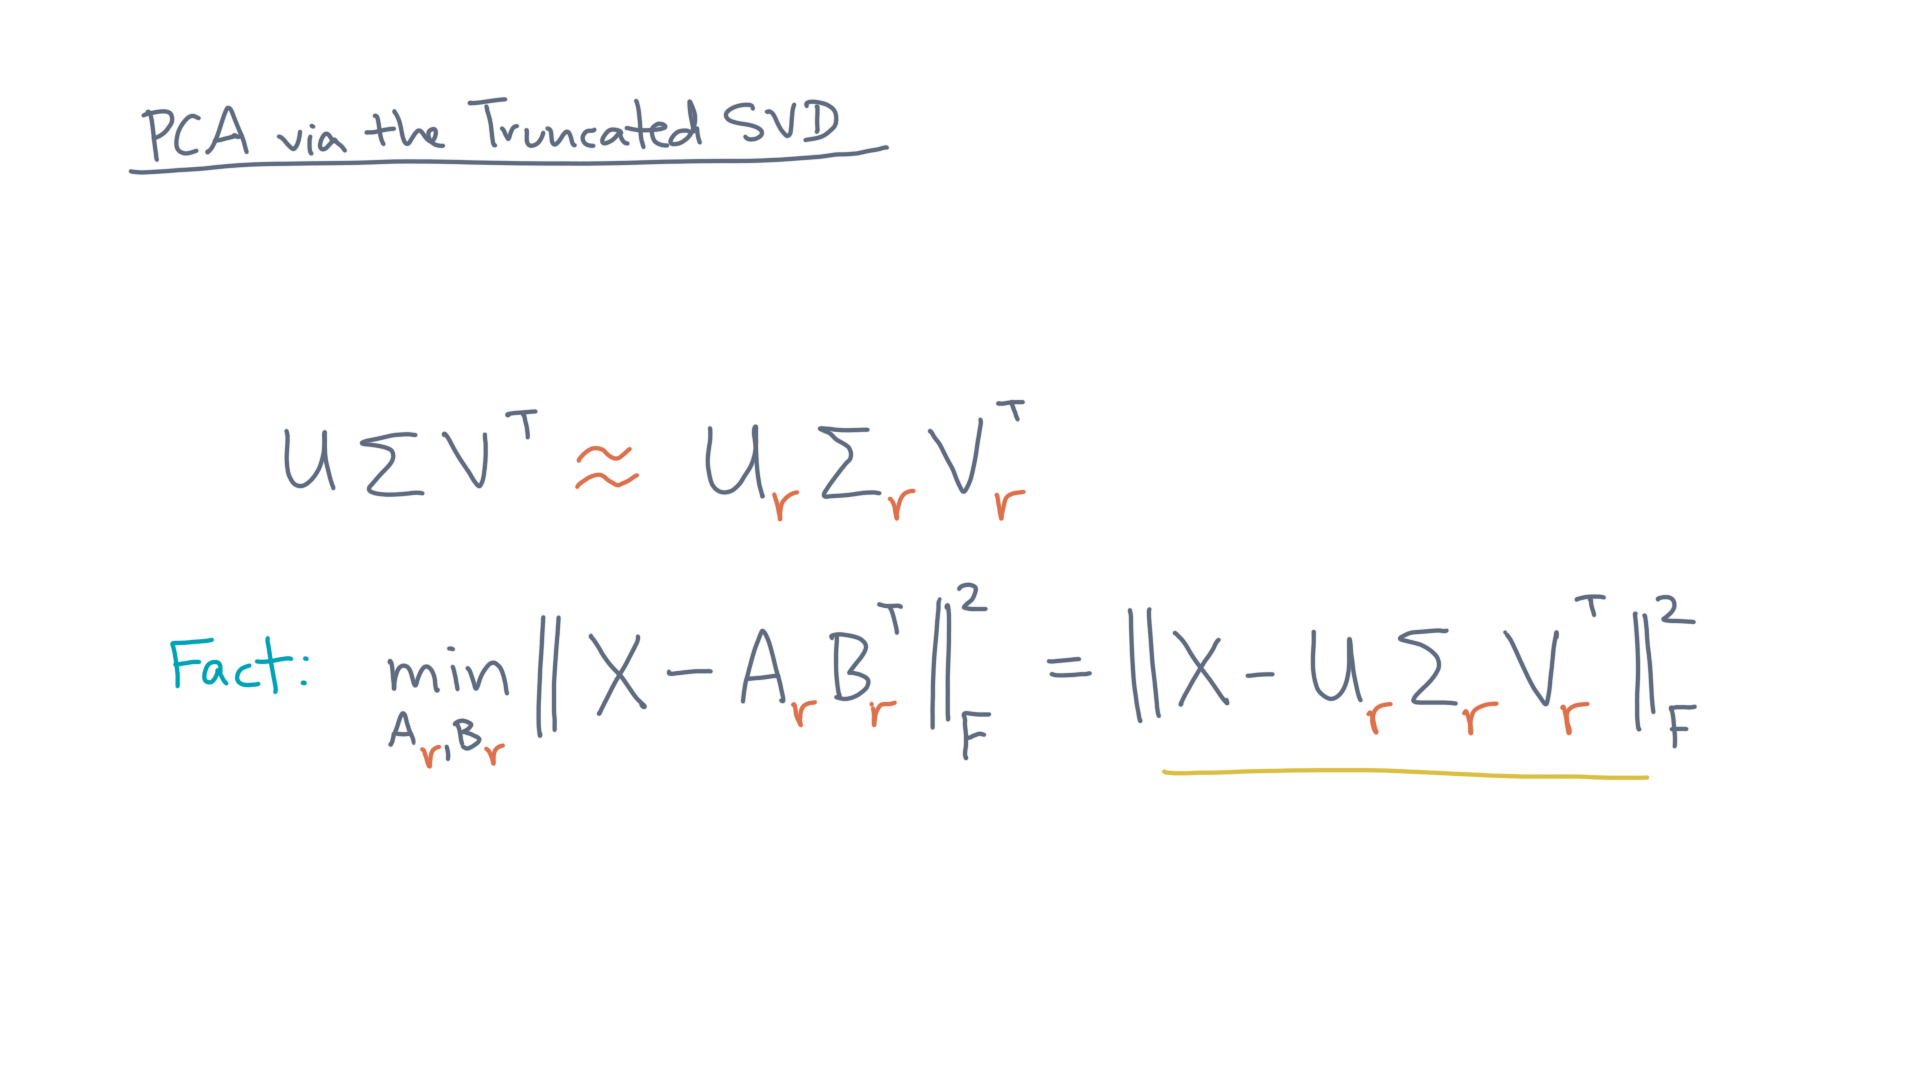 PCA via the Truncated SVD
U Σ Vᵀ ≈ U_r Σ_r V_rᵀ
Fact: min_{A_r, B_r} ‖X − A_r B_rᵀ‖_F² = ‖X − U_r Σ_r V_rᵀ‖_F²